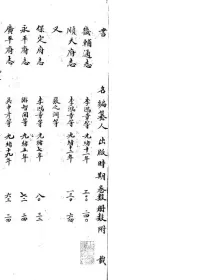 書名 編纂人 出版時期 卷數 册數 附載
畿輔通志 李鴻章等 光緒十二年 三〇〇 二四〇
順天府志 李鴻章等 光緒十二年 一三〇
又 張之洞等
保定府志 李鴻章等 光緒七年 八〇 三二
永平府志 游智開等 光緒五年 七二 二四
廣平府志 吳中彥等 光緒十九年 六三 二四